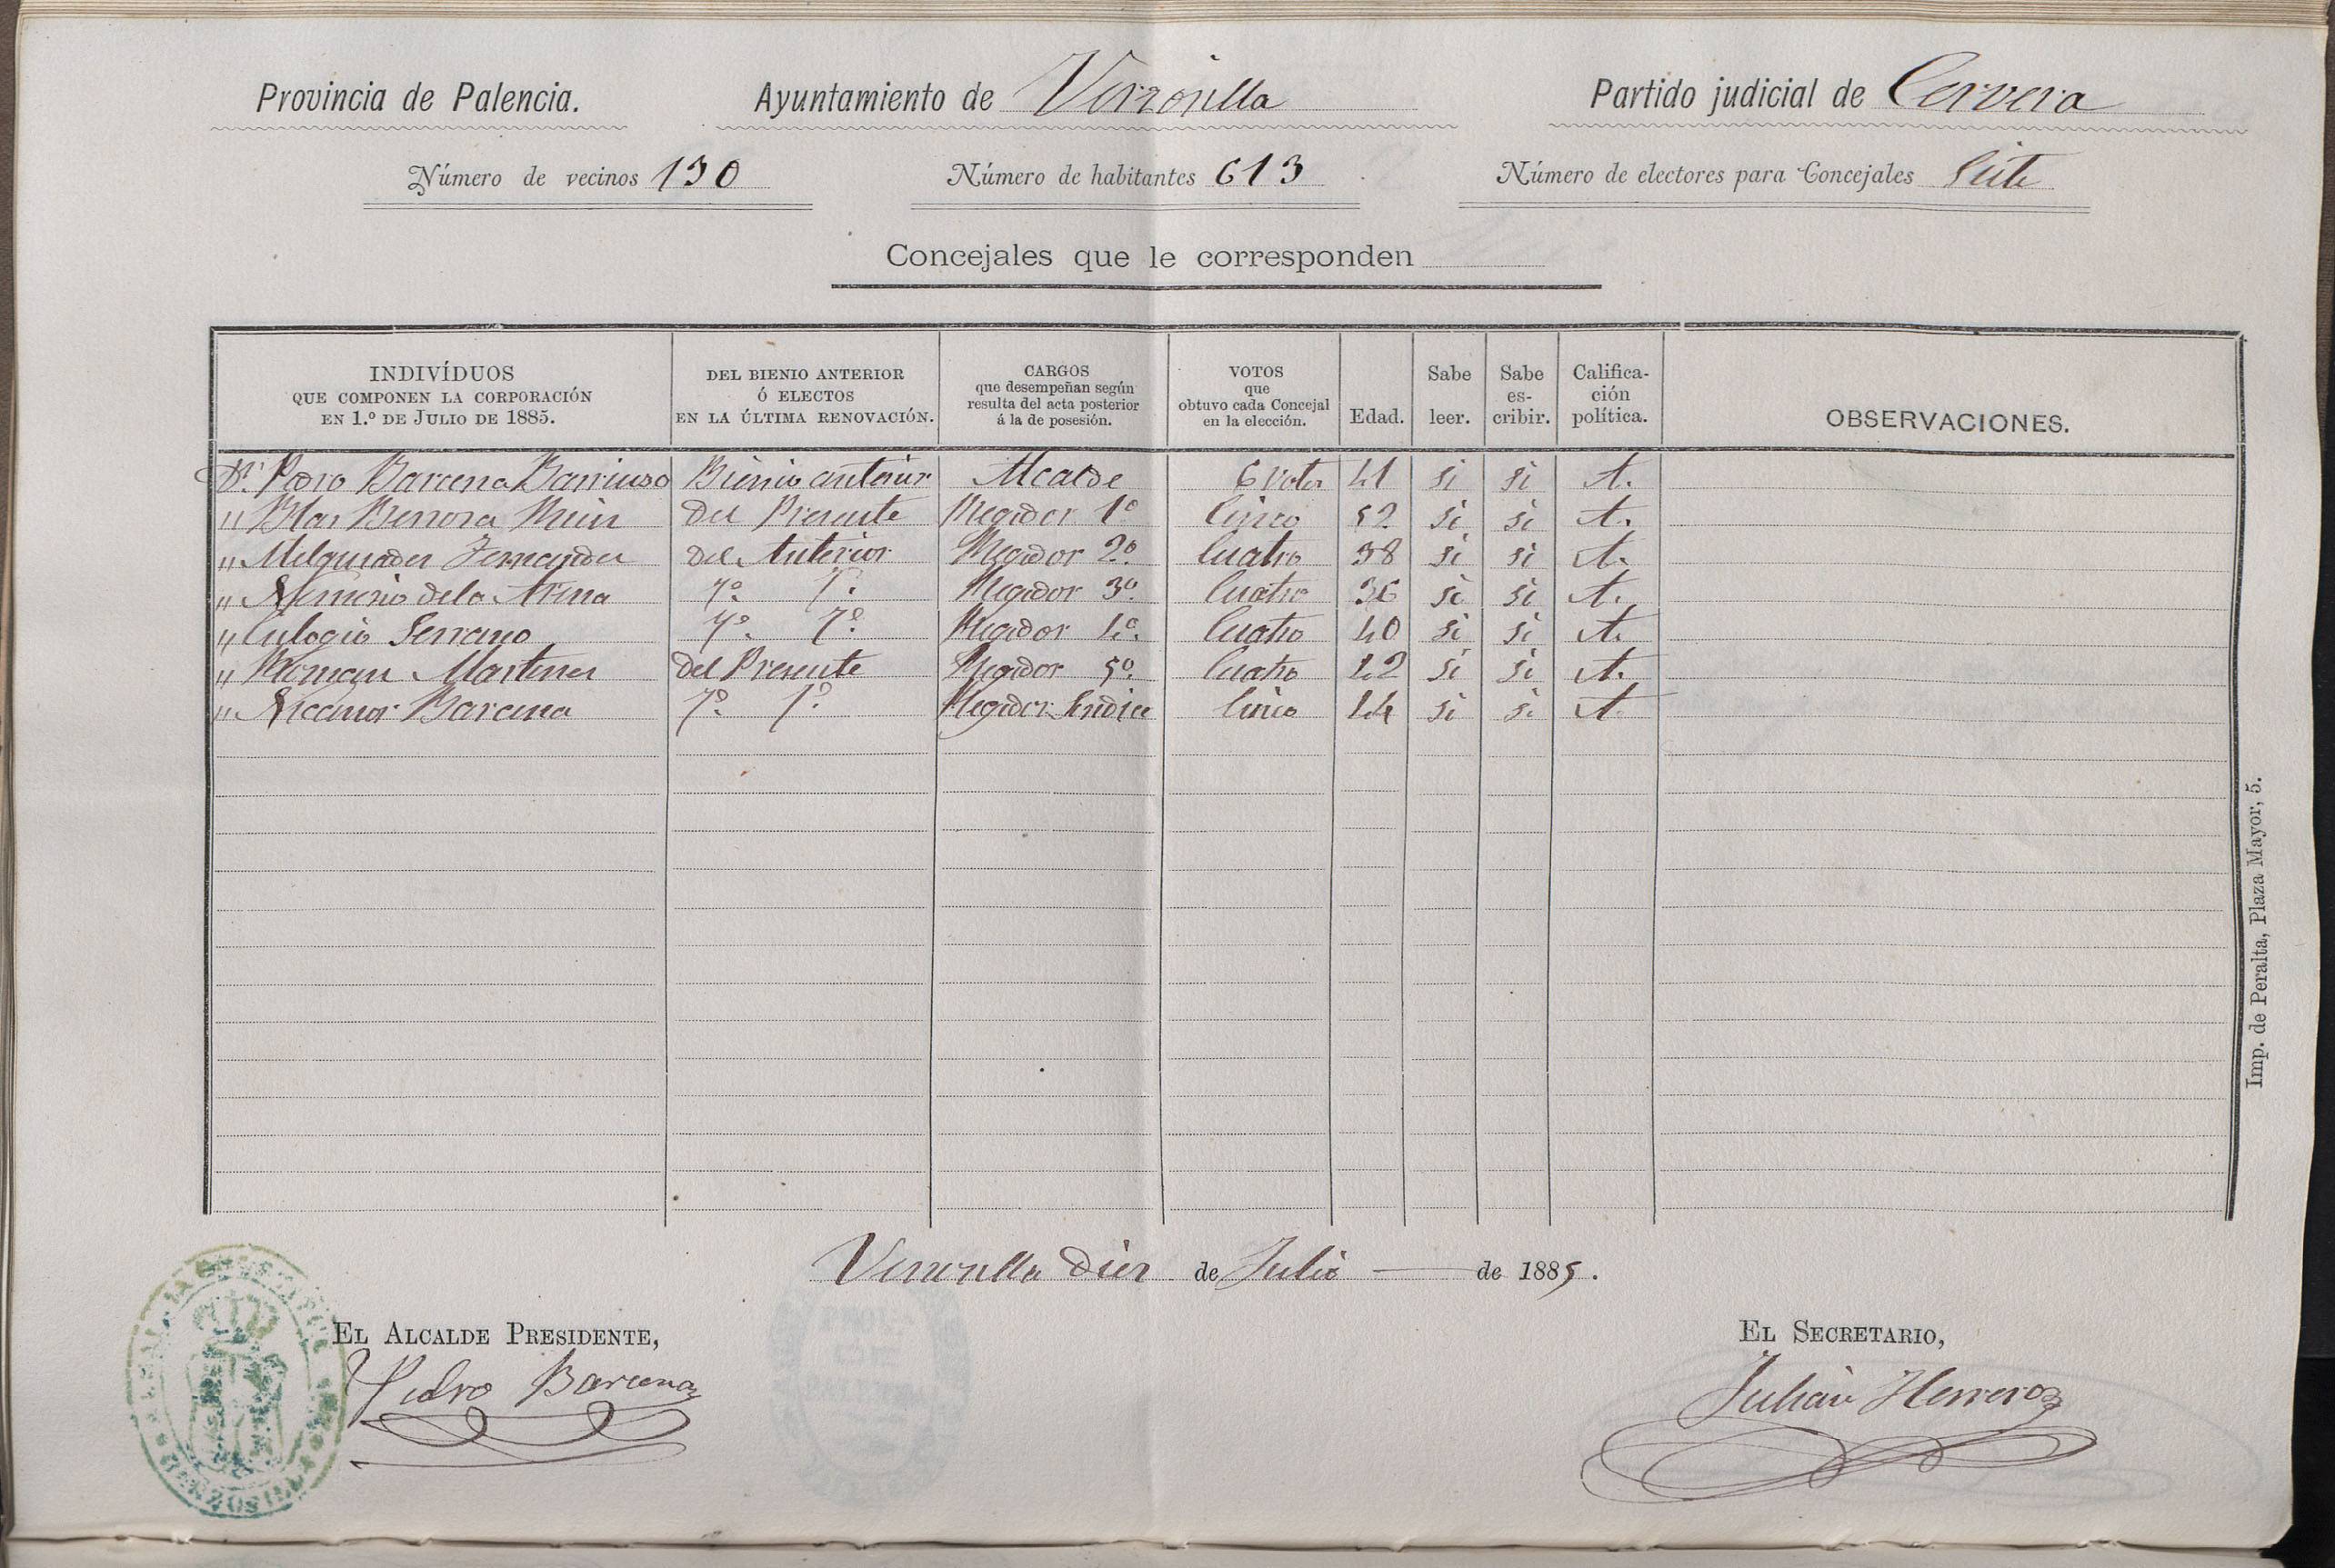 Provincia de Palencia. Ayuntamiento de Verzosilla Partido judicial de Cervera
Número de vecinos 130 Número de habitantes 613 Número de electores para Concejales Siete
Concejales que le corresponden
INDIVÍDUOS QUE COMPONEN LA CORPORACIÓN EN 1.º DE JULIO DE 1885. DEL BIENIO ANTERIOR Ó ELECTOS EN LA ÚLTIMA RENOVACIÓN. CARGOS que desempeñan según resulta del acta posterior á la de posesión. VOTOS que obtuvo cada Concejal en la elección. Edad. Sabe leer. Sabe es-cribir. Califica-ción política. OBSERVACIONES.
Dn. Pedro Barcena Barriuso Bienio anterior Alcalde 6 votos 41 si si A.
" Blas Del Presente Regidor 1º Cinco 52 si si A.
" Melquiades Fernandez del Anterior Regidor 2º Cuatro 38 si si A.
" de la Arena Yº. Yº. Regidor 3º. Cuatro 36 si si A.
" Eulogio Serrano Yº. Yº. Regidor 4º. Cuatro 40 si si A.
" Roman Martinez del Presente Regidor 5º. Cuatro 42 si si A.
" Nicanor Barcena Yº. Yº. Regidor Sindico Cinco 44 si si A
Imp. de Peralta, Plaza Mayor, 5.
Verzosilla Diez de Julio de 1885.
EL ALCALDE PRESIDENTE, EL SECRETARIO,
Pedro Barcena Julián Herrero